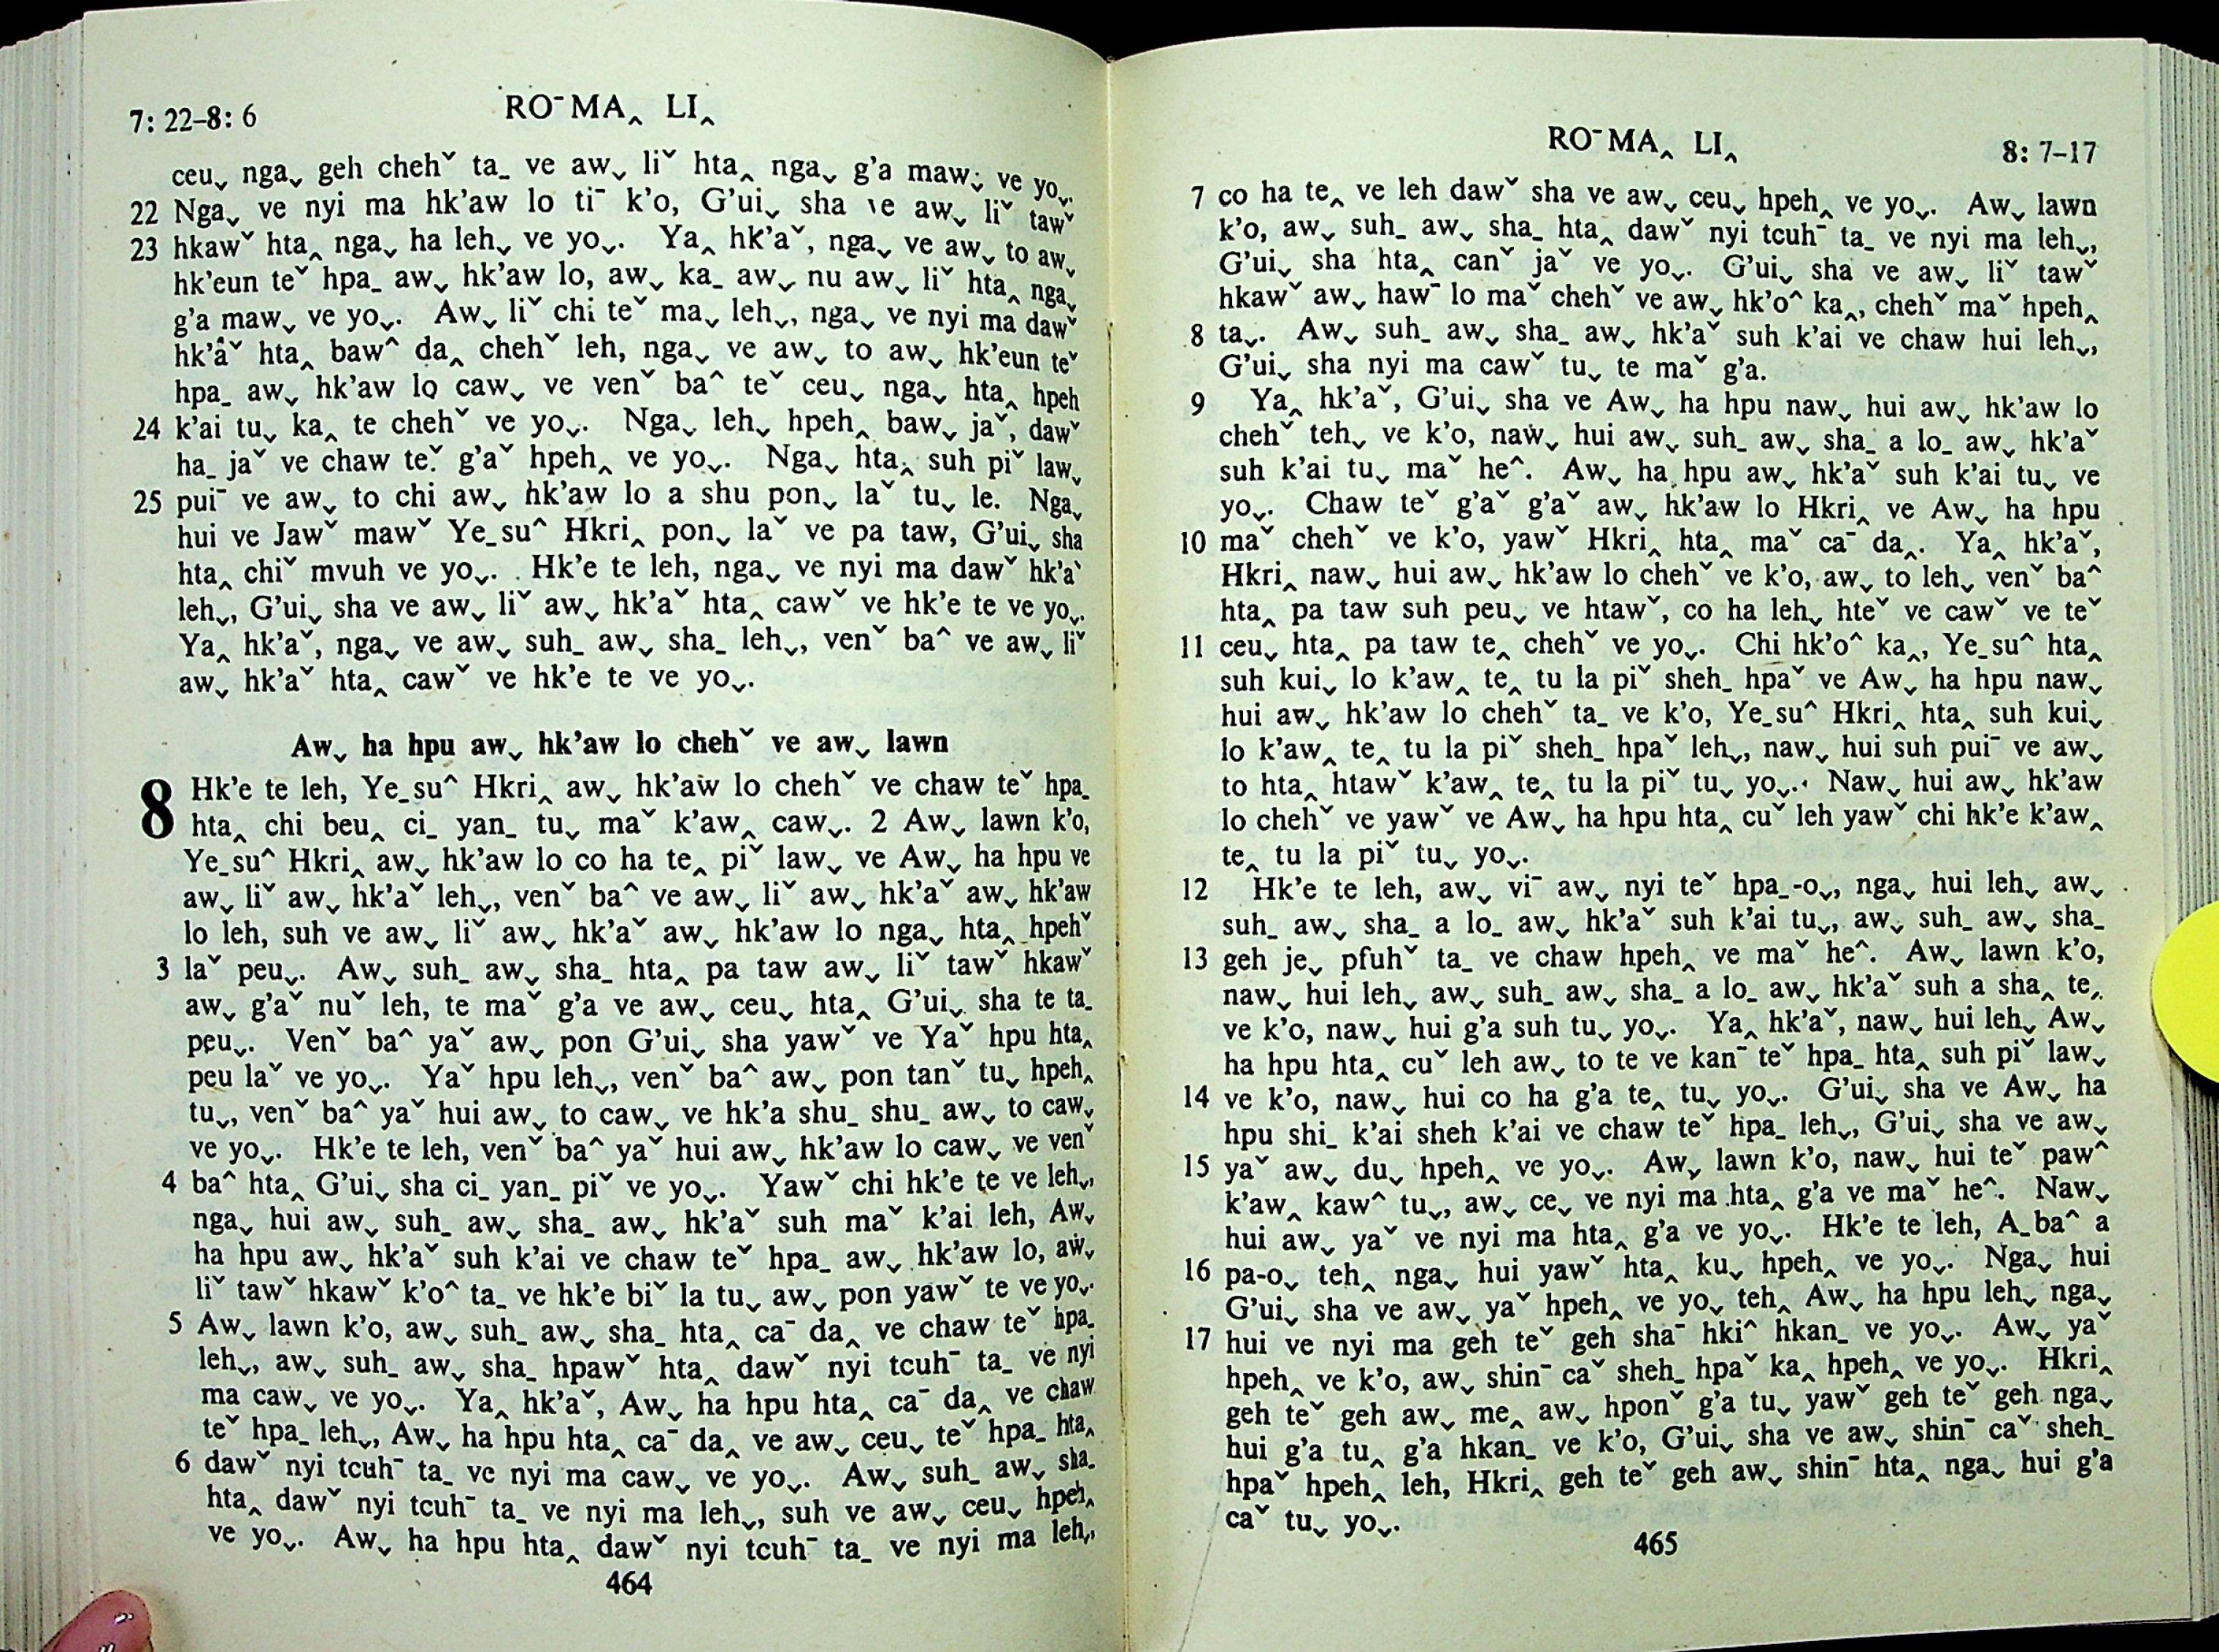 7: 22–8: 6
RO¯MA‸ LI‸
ceuˬ ngaˬ geh chehˇ ta_ ve awˬ liˇ hta‸ ngaˬ g'a mawˬ ve yoˬ.
22 Ngaˬ ve nyi ma hk'aw lo ti¯ k'o, G'uiˬ sha ve awˬ liˇ tawˇ
23 hkawˇ hta‸ ngaˬ ha lehˬ ve yoˬ. Ya‸ hk'aˇ, ngaˬ ve awˬ to awˬ
hk'eun teˇ hpa_ awˬ hk'aw lo, awˬ ka_ awˬ nu awˬ liˇ hta‸ ngaˬ
g'a mawˬ ve yoˬ. Awˬ liˇ chi teˇ maˬ lehˬ, ngaˬ ve nyi ma dawˇ
hk'aˇ hta‸ baw^ da‸ chehˇ leh, ngaˬ ve awˬ to awˬ hk'eun teˇ
hpa_ awˬ hk'aw lo cawˬ ve venˇ ba^ teˇ ceuˬ ngaˬ hta‸ hpeh
24 k'ai tuˬ ka‸ te chehˇ ve yoˬ. Ngaˬ lehˬ hpeh‸ bawˬ jaˇ, dawˇ
ha_ jaˇ ve chaw teˇ g'aˇ hpeh‸ ve yoˬ. Ngaˬ hta‸ suh piˇ lawˬ
25 pui¯ ve awˬ to chi awˬ hk'aw lo a shu ponˬ laˇ tuˬ le. Ngaˬ
hui ve Jawˇ mawˇ Ye_su^ Hkri‸ ponˬ laˇ ve pa taw, G'uiˬ sha
hta‸ chiˇ mvuh ve yoˬ. Hk'e te leh, ngaˬ ve nyi ma dawˇ hk'aˇ
lehˬ, G'uiˬ sha ve awˬ liˇ awˬ hk'aˇ hta‸ cawˇ ve hk'e te ve yoˬ.
Ya‸ hk'aˇ, ngaˬ ve awˬ suh_ awˬ sha_ lehˬ, venˇ ba^ ve awˬ liˇ
awˬ hk'aˇ hta‸ cawˇ ve hk'e te ve yoˬ.
Awˬ ha hpu awˬ hk'aw lo chehˇ ve awˬ lawn
8 Hk'e te leh, Ye_su^ Hkri‸ awˬ hk'aw lo chehˇ ve chaw teˇ hpa_
hta‸ chi beu‸ ci_ yan_ tuˬ maˇ k'aw‸ cawˬ. 2 Awˬ lawn k'o,
Ye_su^ Hkri‸ awˬ hk'aw lo co ha te‸ piˇ lawˬ ve Awˬ ha hpu ve
awˬ liˇ awˬ hk'aˇ lehˬ, venˇ ba^ ve awˬ liˇ awˬ hk'aˇ awˬ hk'aw
lo leh, suh ve awˬ liˇ awˬ hk'aˇ awˬ hk'aw lo ngaˬ hta‸ hpehˇ
3 laˇ peuˬ. Awˬ suh_ awˬ sha_ hta‸ pa taw awˬ liˇ tawˇ hkawˇ
awˬ g'aˇ nuˇ leh, te maˇ g'a ve awˬ ceuˬ hta‸ G'uiˬ sha te ta_
peuˬ. Venˇ ba^ yaˇ awˬ pon G'uiˬ sha yawˇ ve Yaˇ hpu hta‸
peu laˇ ve yoˬ. Yaˇ hpu lehˬ, venˇ ba^ awˬ pon tanˇ tuˬ hpeh‸
tuˬ, venˇ ba^ yaˇ hui awˬ to cawˬ ve hk'a shu_ shu_ awˬ to cawˬ
ve yoˬ. Hk'e te leh, venˇ ba^ yaˇ hui awˬ hk'aw lo cawˬ ve venˇ
4 ba^ hta‸ G'uiˬ sha ci_ yan_ piˇ ve yoˬ. Yawˇ chi hk'e te ve lehˬ,
ngaˬ hui awˬ suh_ awˬ sha_ awˬ hk'aˇ suh maˇ k'ai leh, Awˬ
ha hpu awˬ hk'aˇ suh k'ai ve chaw teˇ hpa_ awˬ hk'aw lo, awˬ
liˇ tawˇ hkawˇ k'o^ ta_ ve hk'e biˇ la tuˬ awˬ pon yawˇ te ve yoˬ.
5 Awˬ lawn k'o, awˬ suh_ awˬ sha_ hta‸ ca¯ da‸ ve chaw teˇ hpa_
lehˬ, awˬ suh_ awˬ sha_ hpawˇ hta‸ dawˇ nyi tcuh¯ ta_ ve nyi
ma cawˬ ve yoˬ. Ya‸ hk'aˇ, Awˬ ha hpu hta‸ ca¯ da‸ ve chaw
teˇ hpa_ lehˬ, Awˬ ha hpu hta‸ ca¯ da‸ ve awˬ ceuˬ teˇ hpa_ hta‸
6 dawˇ nyi tcuh¯ ta_ ve nyi ma cawˬ ve yoˬ. Awˬ suh_ awˬ sha_
hta‸ dawˇ nyi tcuh¯ ta_ ve nyi ma lehˬ, suh ve awˬ ceuˬ hpeh‸
ve yoˬ. Awˬ ha hpu hta‸ dawˇ nyi tcuh¯ ta_ ve nyi ma lehˬ,
464
RO¯MA‸ LI‸
8: 7–17
7 co ha te‸ ve leh dawˇ sha ve awˬ ceuˬ hpeh‸ ve yoˬ. Awˬ lawn
k'o, awˬ suh_ awˬ sha_ hta‸ dawˇ nyi tcuh¯ ta_ ve nyi ma lehˬ,
G'uiˬ sha hta‸ canˇ jaˇ ve yoˬ. G'uiˬ sha ve awˬ liˇ tawˇ
hkawˇ awˬ haw¯ lo maˇ chehˇ ve awˬ hk'o^ ka‸, chehˇ maˇ hpeh‸
8 taˬ. Awˬ suh_ awˬ sha_ awˬ hk'aˇ suh k'ai ve chaw hui lehˬ,
G'uiˬ sha nyi ma cawˇ tuˬ te maˇ g'a.
9 Ya‸ hk'aˇ, G'uiˬ sha ve Awˬ ha hpu nawˬ hui awˬ hk'aw lo
chehˇ tehˬ ve k'o, nawˬ hui awˬ suh_ awˬ sha_ a lo_ awˬ hk'aˇ
suh k'ai tuˬ maˇ he^. Awˬ ha hpu awˬ hk'aˇ suh k'ai tuˬ ve
yoˬ. Chaw teˇ g'aˇ g'aˇ awˬ hk'aw lo Hkri‸ ve Awˬ ha hpu
10 maˇ chehˇ ve k'o, yawˇ Hkri‸ hta‸ maˇ ca¯ da‸. Ya‸ hk'aˇ,
Hkri‸ nawˬ hui awˬ hk'aw lo chehˇ ve k'o, awˬ to lehˬ venˇ ba^
hta‸ pa taw suh peuˬ ve htawˇ, co ha lehˬ hteˇ ve cawˇ ve teˇ
11 ceuˬ hta‸ pa taw te‸ chehˇ ve yoˬ. Chi hk'o^ ka‸, Ye_su^ hta‸
suh kuiˬ lo k'aw‸ te‸ tu la piˇ sheh_ hpaˇ ve Awˬ ha hpu nawˬ
hui awˬ hk'aw lo chehˇ ta_ ve k'o, Ye_su^ Hkri‸ hta‸ suh kuiˬ
lo k'aw‸ te‸ tu la piˇ sheh_ hpaˇ lehˬ, nawˬ hui suh pui¯ ve awˬ
to hta‸ htawˇ k'aw‸ te‸ tu la piˇ tuˬ yoˬ. Nawˬ hui awˬ hk'aw
lo chehˇ ve yawˇ ve Awˬ ha hpu hta‸ cuˇ leh yawˇ chi hk'e k'aw‸
te‸ tu la piˇ tuˬ yoˬ.
12 Hk'e te leh, awˬ vi¯ awˬ nyi teˇ hpa_-oˬ, ngaˬ hui lehˬ awˬ
suh_ awˬ sha_ a lo_ awˬ hk'aˇ suh k'ai tuˬ, awˬ suh_ awˬ sha_
13 geh jeˬ pfuhˇ ta_ ve chaw hpeh‸ ve maˇ he^. Awˬ lawn k'o,
nawˬ hui lehˬ awˬ suh_ awˬ sha_ a lo_ awˬ hk'aˇ suh a sha‸ te‸
ve k'o, nawˬ hui g'a suh tuˬ yoˬ. Ya‸ hk'aˇ, nawˬ hui lehˬ Awˬ
ha hpu hta‸ cuˇ leh awˬ to te ve kan¯ teˇ hpa_ hta‸ suh piˇ lawˬ
14 ve k'o, nawˬ hui co ha g'a te‸ tuˬ yoˬ. G'uiˬ sha ve Awˬ ha
hpu shi_ k'ai sheh k'ai ve chaw teˇ hpa_ lehˬ, G'uiˬ sha ve awˬ
15 yaˇ awˬ duˬ hpeh‸ ve yoˬ. Awˬ lawn k'o, nawˬ hui teˇ paw^
k'aw‸ kaw^ tuˬ, awˬ ceˬ ve nyi ma hta‸ g'a ve maˇ he^. Nawˬ
hui awˬ yaˇ ve nyi ma hta‸ g'a ve yoˬ. Hk'e te leh, A_ba^ a
16 pa-oˬ teh‸ ngaˬ hui yawˇ hta‸ kuˬ hpeh‸ ve yoˬ. Ngaˬ hui
G'uiˬ sha ve awˬ yaˇ hpeh‸ ve yoˬ teh‸ Awˬ ha hpu lehˬ ngaˬ
17 hui ve nyi ma geh teˇ geh sha¯ hki^ hkan_ ve yoˬ. Awˬ yaˇ
hpeh‸ ve k'o, awˬ shin¯ caˇ sheh_ hpaˇ ka‸ hpeh‸ ve yoˬ. Hkri‸
geh teˇ geh awˬ me‸ awˬ hponˇ g'a tuˬ yawˇ geh teˇ geh ngaˬ
hui g'a tu‸ g'a hkan_ ve k'o, G'uiˬ sha ve awˬ shin¯ caˇ sheh_
hpaˇ hpeh‸ leh, Hkri‸ geh teˇ geh awˬ shin¯ hta‸ ngaˬ hui g'a
caˇ tuˬ yoˬ.
465